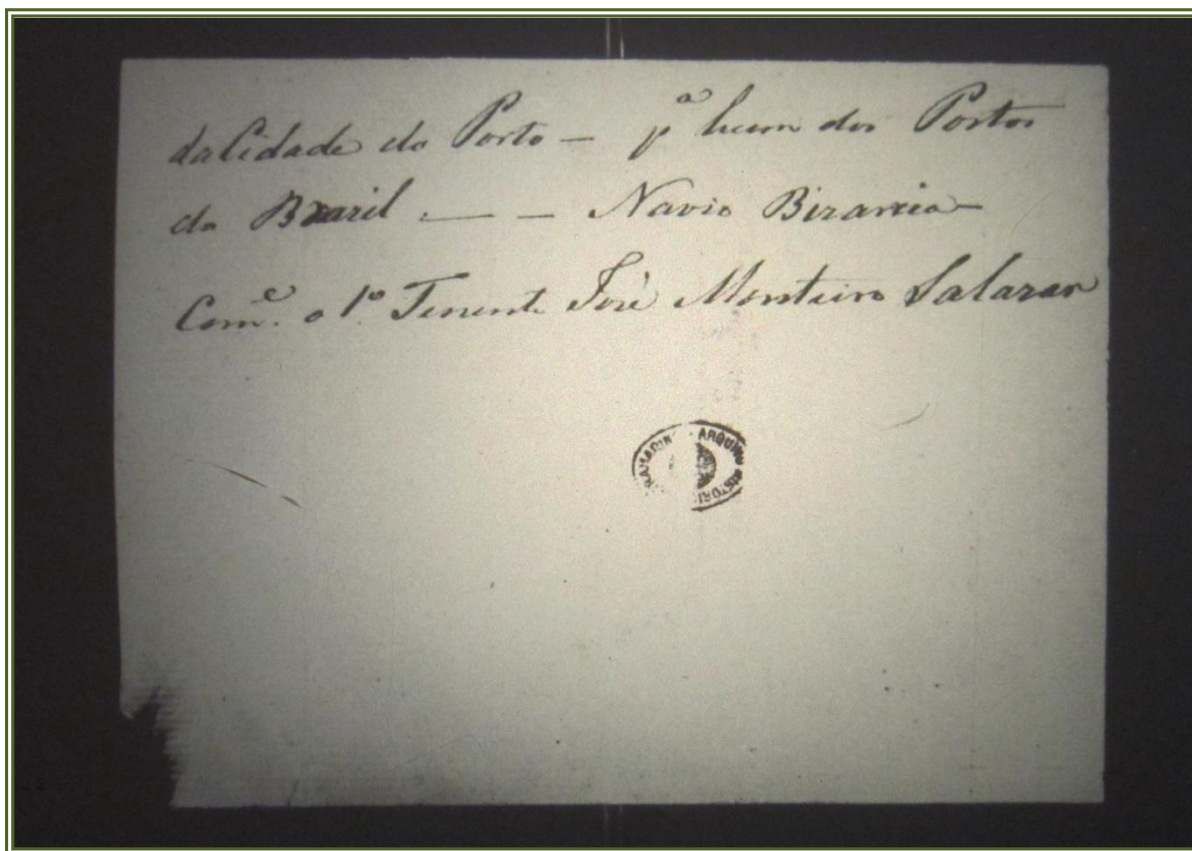 da Cidade do Porto — p.ª hum dos Portos
do Brazil — — Navio Bizarria —
Com.e o 1º Tenente José Monteiro Salazar
ARQUIVO HISTORI
RAMARIN